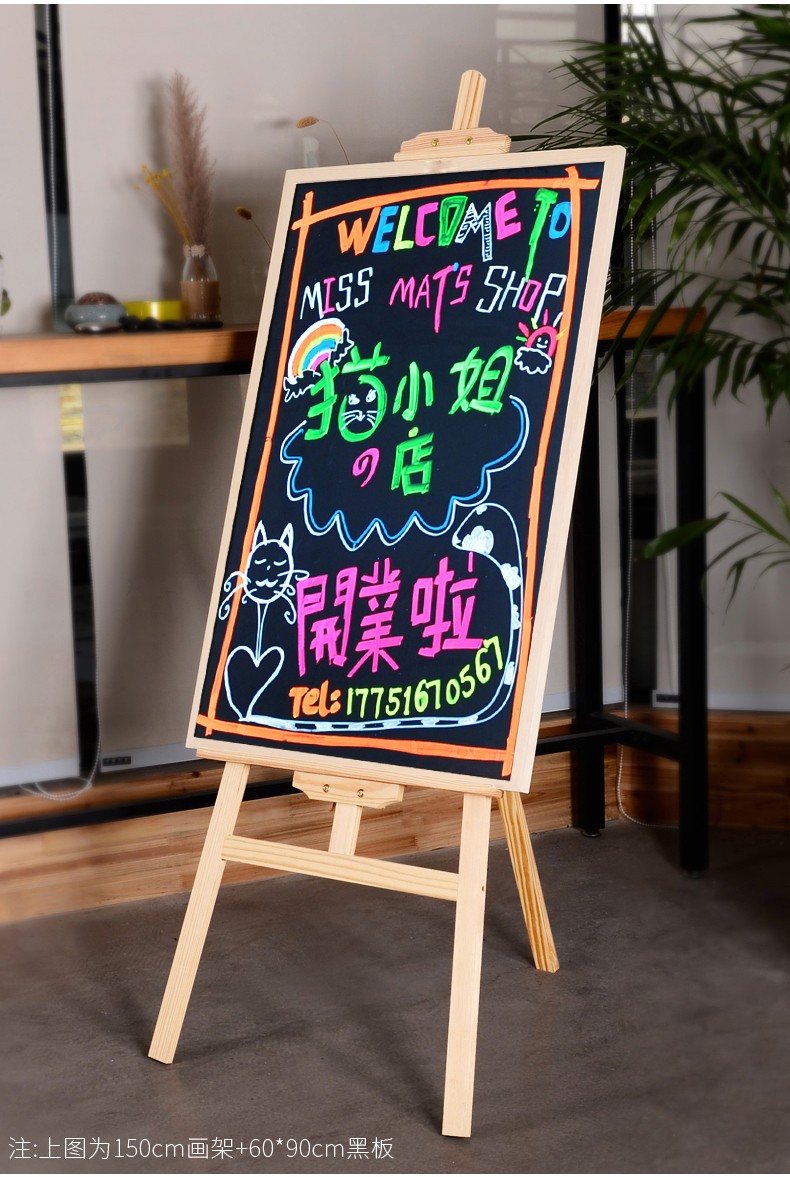 WELCOME TO
MISS MAT'S SHOP
猫小姐
の店
開業啦
Tel: 17751670567
注:上图为150cm画架+60*90cm黑板